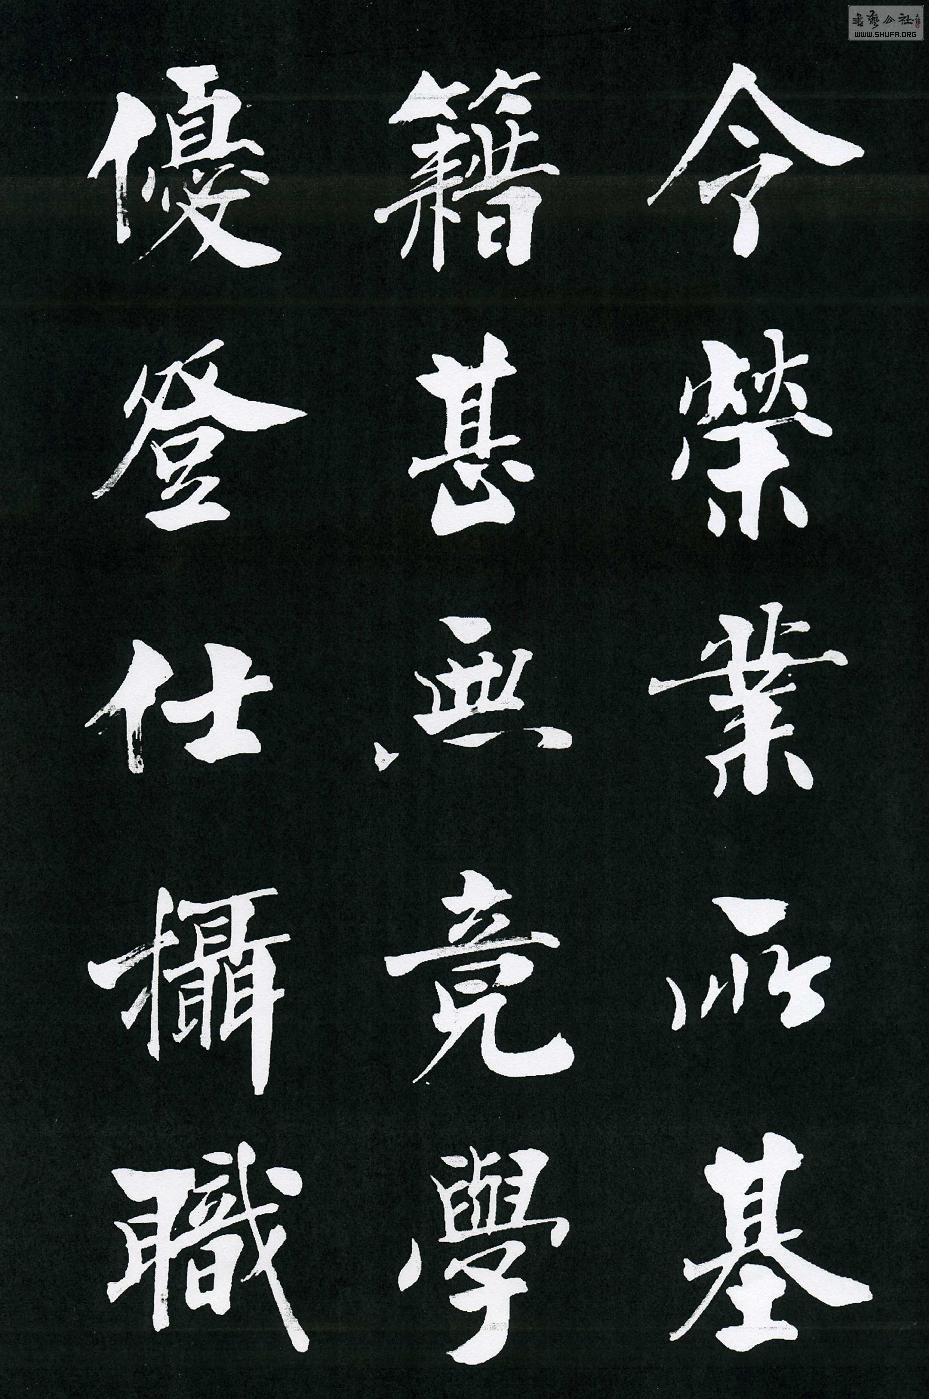 令榮業所基
籍甚無竟學
優登仕攝職
書藝公社
WWW.SHUFA.ORG